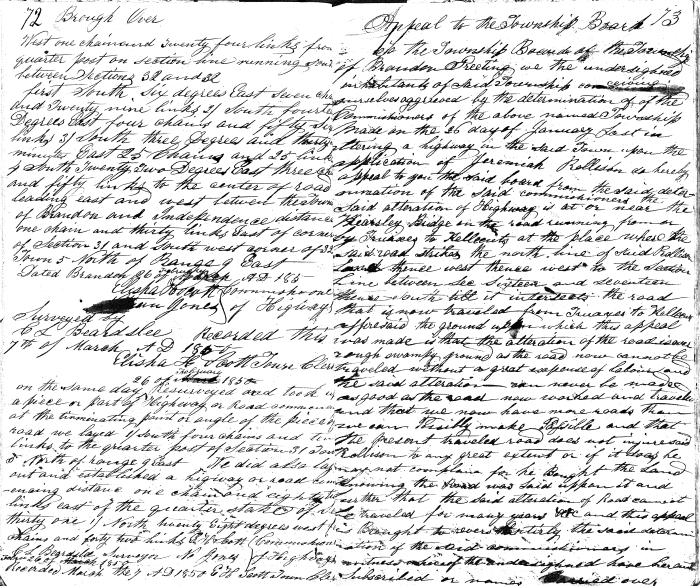 72 Brough Over
West one chain and Twenty four links from
quarter post on section line running
between Sections 31 and 32
first South Six degrees East Seven chs
and Twenty nine links 2/ South fourteen
Degrees East four chains and fifty six
links 3/ South three Degrees and thirty
minutes East 25 Chains and 25 links
4 South Twenty Two Degrees East three
and fifty links to the center of road
leading east and west between the Towns
of Brandon and Independence distance
one chain and thirty links East of corner
of Section 31 and South west corner of 32
Town 5 North of Range 9 East
Dated Brandon 26 AD 185
Elisha Scott Commissioners
Jones of Highways
Surveyed
C S Beardslee Recorded this
7th of March AD 1850
Elisha H Scott Town Clerk
26 of February 1850
on the same day Resurveyed and took
a piece or part of Highway or Road commencing
at the terminating point or angle of the piece of
road we layed 1/ South four chains and ten
links to the quarter post of Section 31 Town
5 North of range 9 East We did also lay
out and established a highway or road
distance one chain and eighty
links east of the quarter stake of
thirty one 1/ North twenty Eight degrees west
chains and forty two links E H Scott Commissioners
C S Beardslee Surveyor N Jones of Highways
Recorded March the 7 AD 1850 E H Scott Town Clerk
73
Appeal to the Township Board
To the Township Board of the Township
of Brandon Greeting we the undersigned
inhabitants of Said Township
ourselves aggrieved by the determination of the
Commissioners of the above named Township
Made on the 26 day of January Last in
altering a highway in the Said Town upon the
application of Jeremiah Rollison do hereby
appeal to you the Said board from the Said deter-
mination of the Said Commissioners the
Said alteration of Highway is at or near the
Kearsley Bridge on the road running from
by Truaxes to Kelloggs at the place where the
Said road Strikes the north line of Said Rollison
Land thence west thence west to the Section
Line between Sec Sixteen and Seventeen
thence South till it intersects the road
that is now traveled from Truaxes to Kelloggs
afforesaid the ground upon which this appeal
was made is that the alteration of the road is over
rough swampy ground as the road now cannot be
traveled without a great expense of Labour and
the said alteration can never be made
as good as the road now worked and traveled
and that we now have more roads than
we can Possibly make Passible and that
the present traveled road does not injure said
Rollison to any great extent or if it does he
may not complain for he Bought the Land
Knowing the Road was Laid upon it and
further that the Said alteration of Road cannot
be traveled for many years &c and this appeal
is Brought to reverse Entirely the Said determin
ation of the Said commissioners in
witness where of the undersigned have hereunto
Subscribed or names Carried over